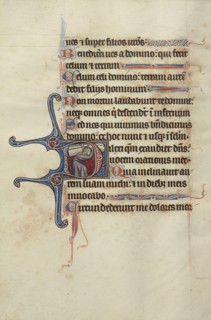 nes et super filios ur̄os
Benedicti uos a domino: qui fecit
celum et terram
Celum celi domino: terram autē
dedit filiis hominum
Non mortui laudabunt te domine:
neqȝ omnes q̇ descendūt ī infernum
Sed nos qui uiuimus bn̄dicimus
domino: ex hoc nunc et usqȝ ī sc̄lm
ilexi qm̄ exaudiet dn̄s:
uocem orationis mee
Quia inclinauit au
rem suam michi: et in diebȝ meis
inuocabo
Circundederunt me dolores mor